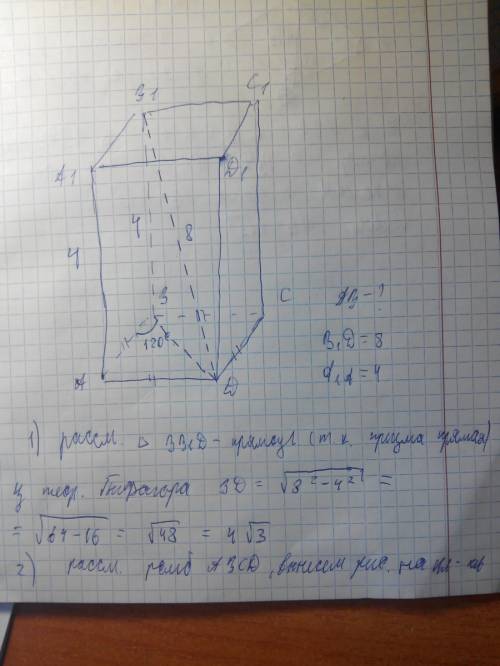 B1 C1
A1 D1
4 4 8
B C
120°
A D
AB - ?
B₁D = 8
A₁A = 4
1) рассм. △ BB₁D - прямоуг (т.к. призма прямая)
теор. Пифагора BD = √8² - 4² =
= √64 - 16 = √48 = 4√3
2) рассм. ромб ABCD, вынесем рис. на